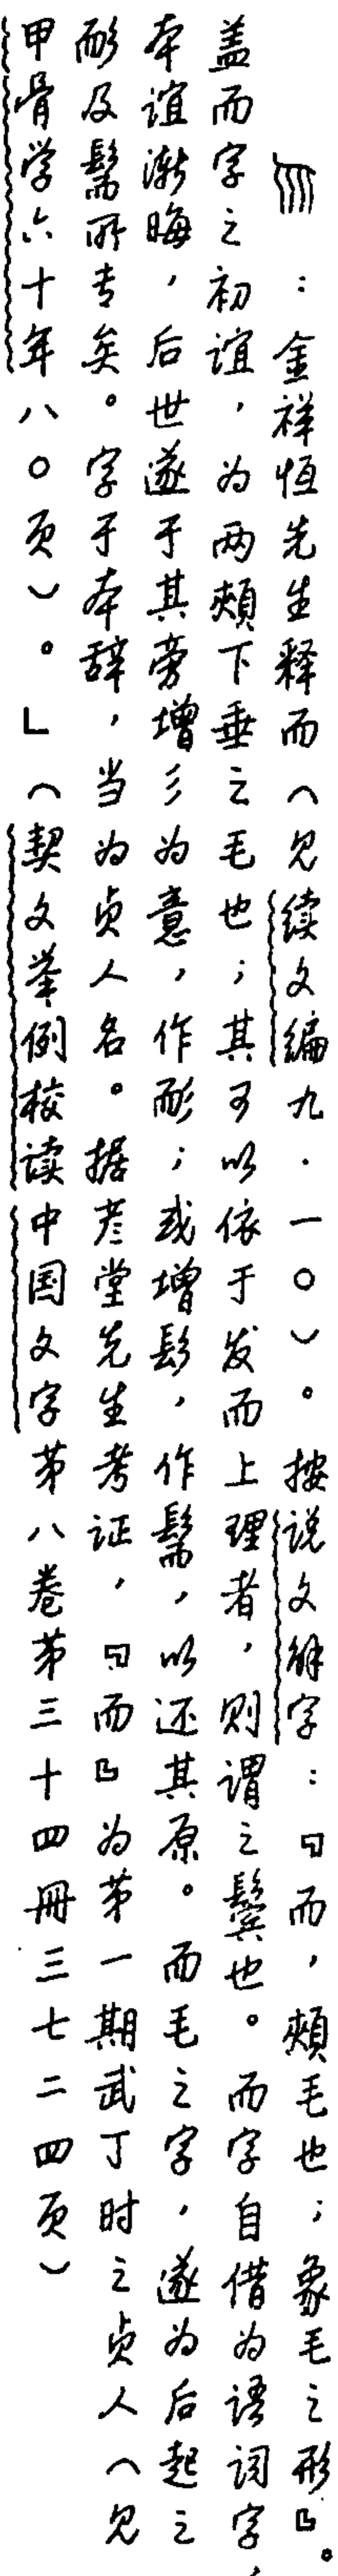 ：金祥恆先生释而（见续文编九·一〇）。按说文解字：『而，頰毛也；象毛之形』。
盖而字之初谊，为两頰下垂之毛也；其可以依于发而上理者，则谓之鬓也。而字自借为语词字，
本谊渐晦，后世遂于其旁增彡为意，作耏；或增髟，作髵，以还其原。而毛之字，遂为后起之
耏及髵所专矣。字于本辞，当为贞人名。据彦堂先生考证，『而』为第一期武丁时之贞人（见
甲骨学六十年八〇页）。」（契文举例校读中国文字第八卷第三十四冊三七二四页）